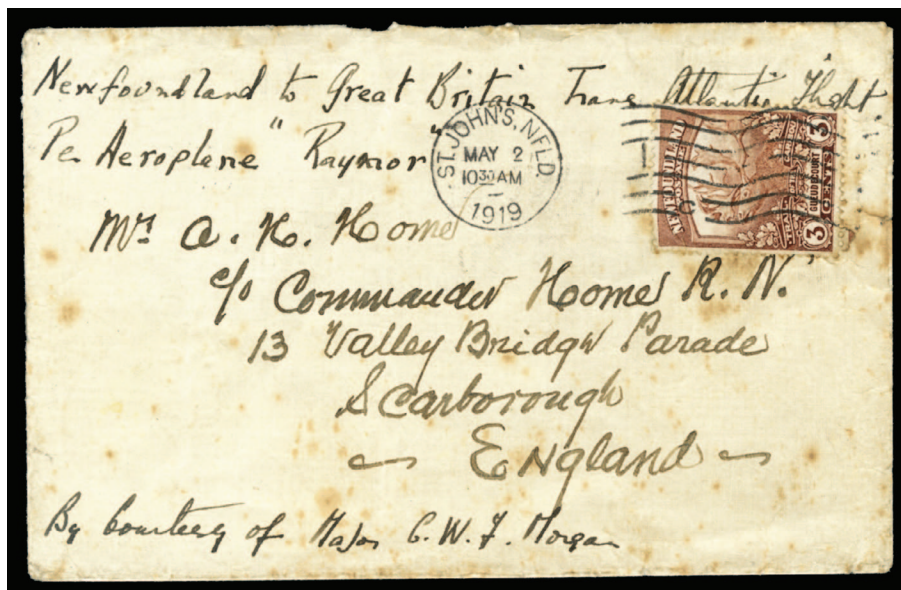 Newfoundland to Great Britain Trans Atlantic Flight
Per Aeroplane "Raymor"
ST. JOHN'S, NFLD.
MAY 2
10 30 AM
1919
NEWFOUNDLAND
GUEUDECOURT
3 CENTS 3
Mr. A. H. Home
c/o Commander Home R. N.
13 Valley Bridge Parade
Scarborough
England
By Courtesy of Major C. W. F. Morgan